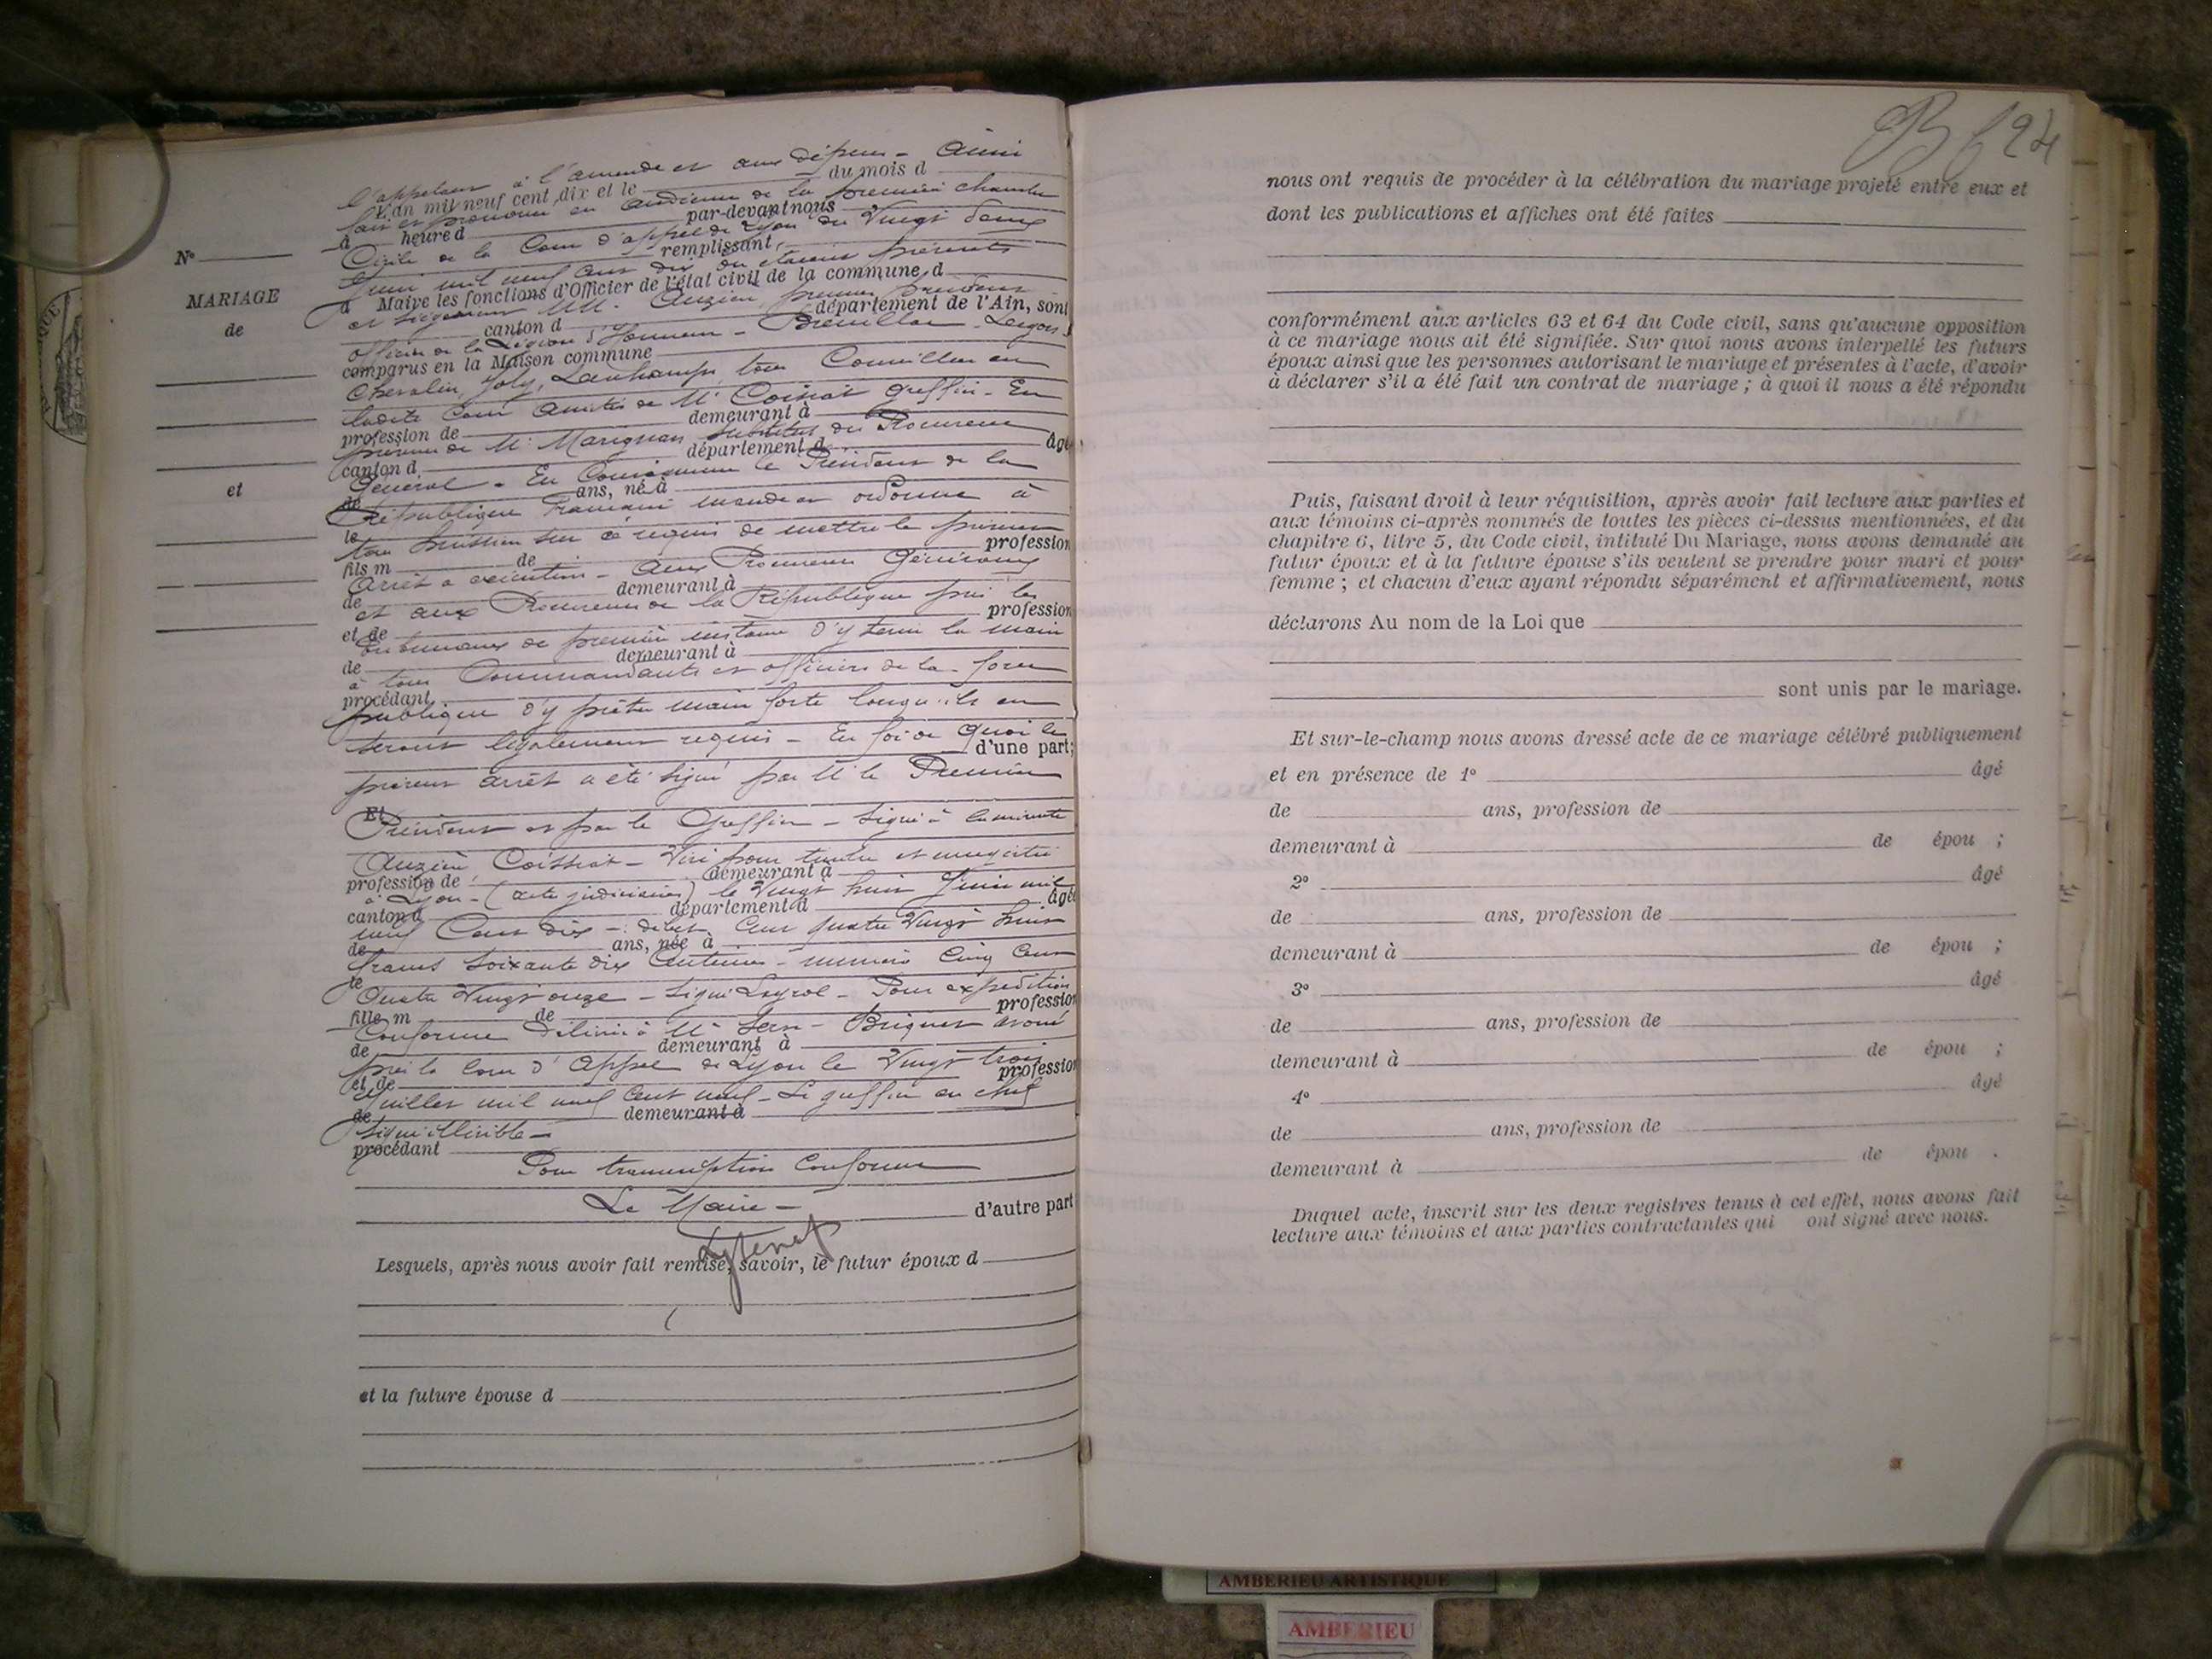 l'appelant à l'amende et aux dépens - Ainsi
L'an mil neuf cent dix et le du mois d
fait et prononcé en audience de la première chambre
à heure d par-devant nous
Civile de la Cour d'appel de Lyon du Vingt deux
remplissant
Juin mil neuf cent dix où étaient présents
d Maire les fonctions d'Officier de l'état civil de la commune d
et siégeaient MM. Auzière, premier président
canton d département de l'Ain, sont
officier de la Légion d'Honneur -
comparus en la Maison commune
Chevalier, Joly, tous Conseillers en
ladite Cour Assistés de Me Coissiat greffier - En
profession de demeurant à
présence de M. Marignan substitut du Procureur
canton d département d âgé
Général - En Conséquence le Président de la
de ans, né à
République Française mande et ordonne à
le
tous huissiers sur ce requis de mettre le présent
fils m de profession
Arrêt à exécution - Aux Procureurs Généraux
de demeurant à
et aux Procureurs de la République près les
et de profession
tribunaux de première instance d'y tenir la main
de demeurant à
à tous Commandants et officiers de la force
procédant
publique d'y prêter main forte lorsqu'ils en
seront légalement requis - En foi de quoi le
d'une part;
présent arrêt a été signé par M. le Premier
Et
Président et par le Greffier - Signé à la minute
Auzière Coissiat - Visé pour timbre et enregistré
profession de demeurant à
à Lyon - (acte judiciaires) le Vingt huit Juin mil
canton d département d âgée
neuf Cent dix - débet Cent quatre Vingt huit
de ans, née à
francs soixante dix Centimes - numéro Cinq Cent
le
Quatre Vingt onze - signé - Pour expédition
fille m de profession
Conforme Délivrée à Me - Briguet avoué
de demeurant à
près la Cour d'Appel de Lyon le Vingt trois
et de profession
Juillet mil neuf Cent neuf - Le greffier en chef
de demeurant à
signé illisible -
procédant
Pour transcription Conforme
Le Maire -
d'autre part
Lesquels, après nous avoir fait remise, savoir, le futur époux d
et la future épouse d
No
MARIAGE
de
et
B f 24
nous ont requis de procéder à la célébration du mariage projeté entre eux et
dont les publications et affiches ont été faites
conformément aux articles 63 et 64 du Code civil, sans qu'aucune opposition
à ce mariage nous ait été signifiée. Sur quoi nous avons interpellé les futurs
époux ainsi que les personnes autorisant le mariage et présentes à l'acte, d'avoir
à déclarer s'il a été fait un contrat de mariage ; à quoi il nous a été répondu
Puis, faisant droit à leur réquisition, après avoir fait lecture aux parties et
aux témoins ci-après nommés de toutes les pièces ci-dessus mentionnées, et du
chapitre 6, titre 5, du Code civil, intitulé Du Mariage, nous avons demandé au
futur époux et à la future épouse s'ils veulent se prendre pour mari et pour
femme ; et chacun d'eux ayant répondu séparément et affirmativement, nous
déclarons Au nom de la Loi que
sont unis par le mariage.
Et sur-le-champ nous avons dressé acte de ce mariage célébré publiquement
et en présence de 1° âgé
de ans, profession de
demeurant à de épou ;
2° âgé
de ans, profession de
demeurant à de épou ;
3° âgé
de ans, profession de
demeurant à de épou ;
4° âgé
de ans, profession de
demeurant à de épou .
Duquel acte, inscrit sur les deux registres tenus à cet effet, nous avons fait
lecture aux témoins et aux parties contractantes qui ont signé avec nous.
AMBERIEU ARTISTIQUE
AMBERIEU